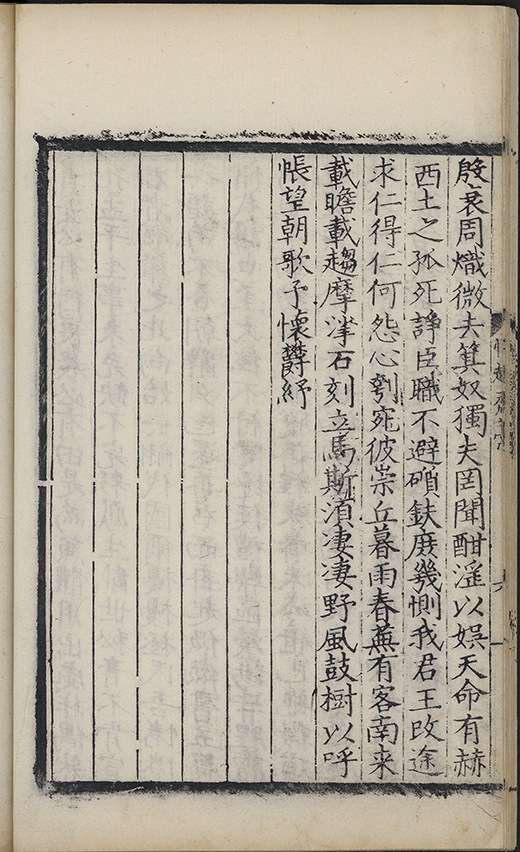 殷衰周熾微去箕奴獨夫罔聞酣滛以娛天命有赫
西土之孤死諍臣職不避碩鈇庻幾惻我君王改途
求仁得仁何怨心刳宛彼崇丘暮雨春蕪有客南来
載瞻載趨摩挲石刻立馬斯湏凄凄野風鼓樹以呼
悵望朝歌予懷欝紆